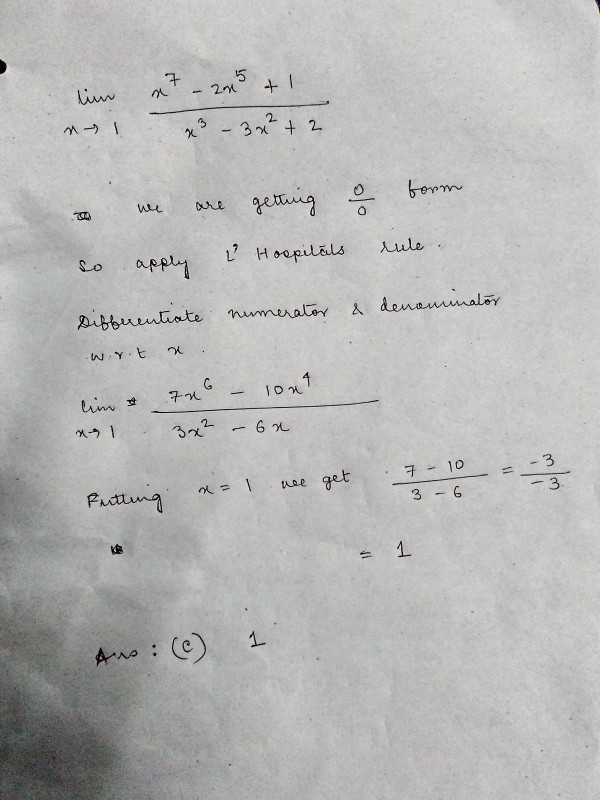 lim x→1 (x⁷ - 2x⁵ + 1) / (x³ - 3x² + 2)
we are getting 0/0 form
so apply L' Hospitals rule .
Differentiate numerator & denominator
w.r.t x .
lim x→1 (7x⁶ - 10x⁴) / (3x² - 6x)
Putting x = 1 we get (7 - 10) / (3 - 6) = -3 / -3
= 1
Ans : (c) 1